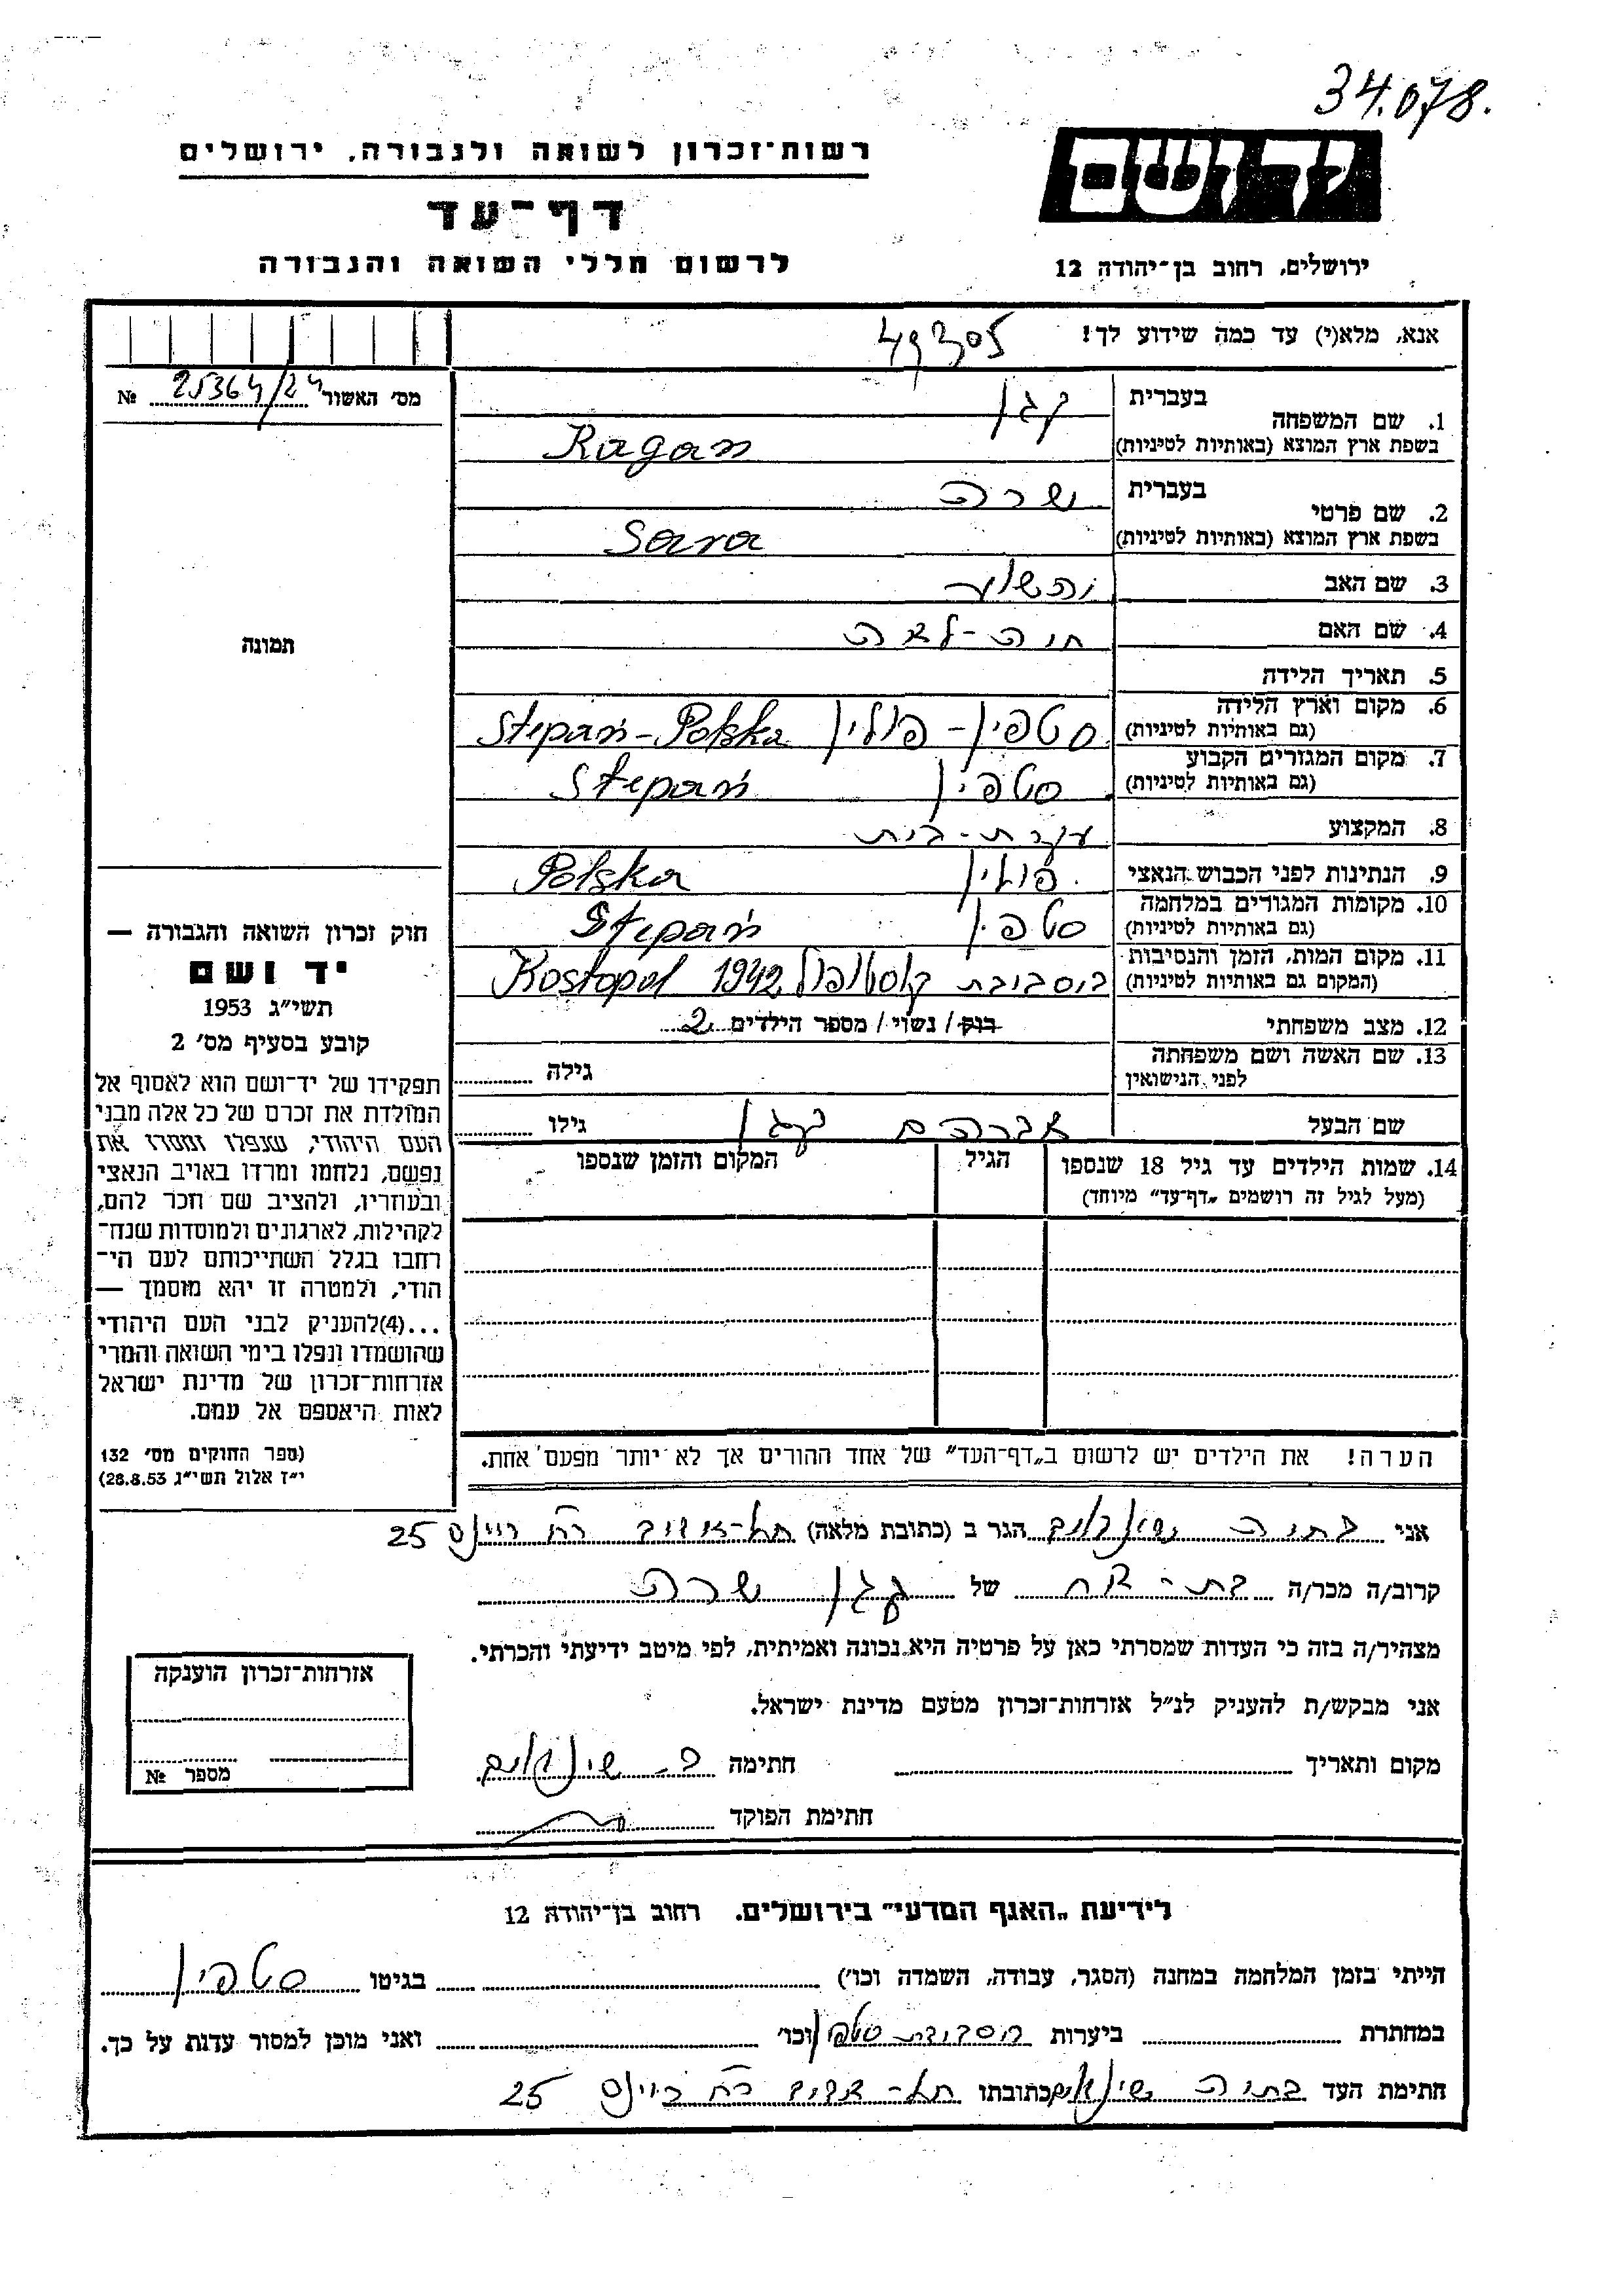 34.078.
רשות־זכרון לשואה ולגבורה, ירושלים
יד ושם
דף־עד
לרשום חללי השואה והגבורה
ירושלים, רחוב בן־יהודה 12
אנא, מלא(י) עד כמה שידוע לך!
מס׳ האשור 25364/24 №
1. שם המשפחה
בעברית קגן
בשפת ארץ המוצא (באותיות לטיניות) Kagan
2. שם פרטי
בעברית שרה
בשפת ארץ המוצא (באותיות לטיניות) Sara
3. שם האב יהושוע
4. שם האם חיה-לאה
תמונה
5. תאריך הלידה
6. מקום וארץ הלידה (גם באותיות לטיניות) סטפין - פולין Stepań-Polska
7. מקום המגורים הקבוע (גם באותיות לטיניות) סטפין Stepań
8. המקצוע עקרת-בית
9. הנתינות לפני הכבוש הנאצי פולין Polska
10. מקומות המגורים במלחמה (גם באותיות לטיניות) סטפין Stepań
11. מקום המות, הזמן והנסיבות (המקום גם באותיות לטיניות) בסביבת קוסטופול 1942 Kostopol
12. מצב משפחתי רוק/ נשוי/ מספר הילדים 2
13. שם האשה ושם משפחתה לפני הנישואין גילה
שם הבעל אברהם קגן גילו
14. שמות הילדים עד גיל 18 שנספו (מעל לגיל זה רושמים „דף־עד״ מיוחד)
הגיל
המקום והזמן שנספו
חוק זכרון השואה והגבורה —
יד ושם
תשי״ג 1953
קובע בסעיף מס׳ 2
תפקידו של יד־ושם הוא לאסוף אל
המולדת את זכרם של כל אלה מבני
העם היהודי, שנפלו ומסרו את
נפשם, נלחמו ומרדו באויב הנאצי
ובעוזריו, ולהציב שם וזכר להם,
לקהילות, לארגונים ולמוסדות שנח־
רבו בגלל השתייכותם לעם הי־
הודי, ולמטרה זו יהא מוסמך —
...(4)להעניק לבני העם היהודי
שהושמדו ונפלו בימי השואה והמרי
אזרחות־זכרון של מדינת ישראל
לאות היאספם אל עמם.
(ספר החוקים מס׳ 132
י״ז אלול תשי״ג 28.8.53)
הערה! את הילדים יש לרשום ב„דף־העד״ של אחד ההורים אך לא יותר מפעם אחת.
אני בתיה הגר ב (כתובת מלאה) תל-אביב רח׳ 25
קרוב/ה מכר/ה בת-אח של קגן שרה
מצהיר/ה בזה כי העדות שמסרתי כאן על פרטיה היא נכונה ואמיתית, לפי מיטב ידיעתי והכרתי.
אני מבקש/ת להעניק לנ״ל אזרחות־זכרון מטעם מדינת ישראל.
מקום ותאריך חתימה ב-
חתימת הפוקד
אזרחות־זכרון הוענקה
מספר №
לידיעת „האגף המדעי״ בירושלים, רחוב בן־יהודה 12
הייתי בזמן המלחמה במחנה (הסגר, עבודה, השמדה וכו׳) בגיטו סטפין
במחתרת ביערות בסביבת סטפין וכו׳ ואני מוכן למסור עדות על כך.
חתימת העד בתיה וכתובתו תל-אביב רח׳ 25